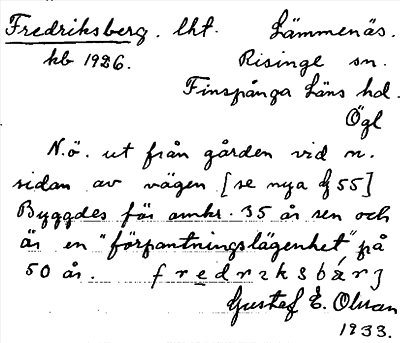 Fredriksberg. lht. Lämmenäs.
kb 1926. Risinge sn.
Finspånga Läns hd.
Ögl
N.ö. ut från gården vid n.
sidan av vägen [se nya 55]
Byggdes för omkr. 35 år sen och
är en "förpantningslägenhet" på
50 år. fredrɪksbärj
Gustaf E. Olsson
1933.